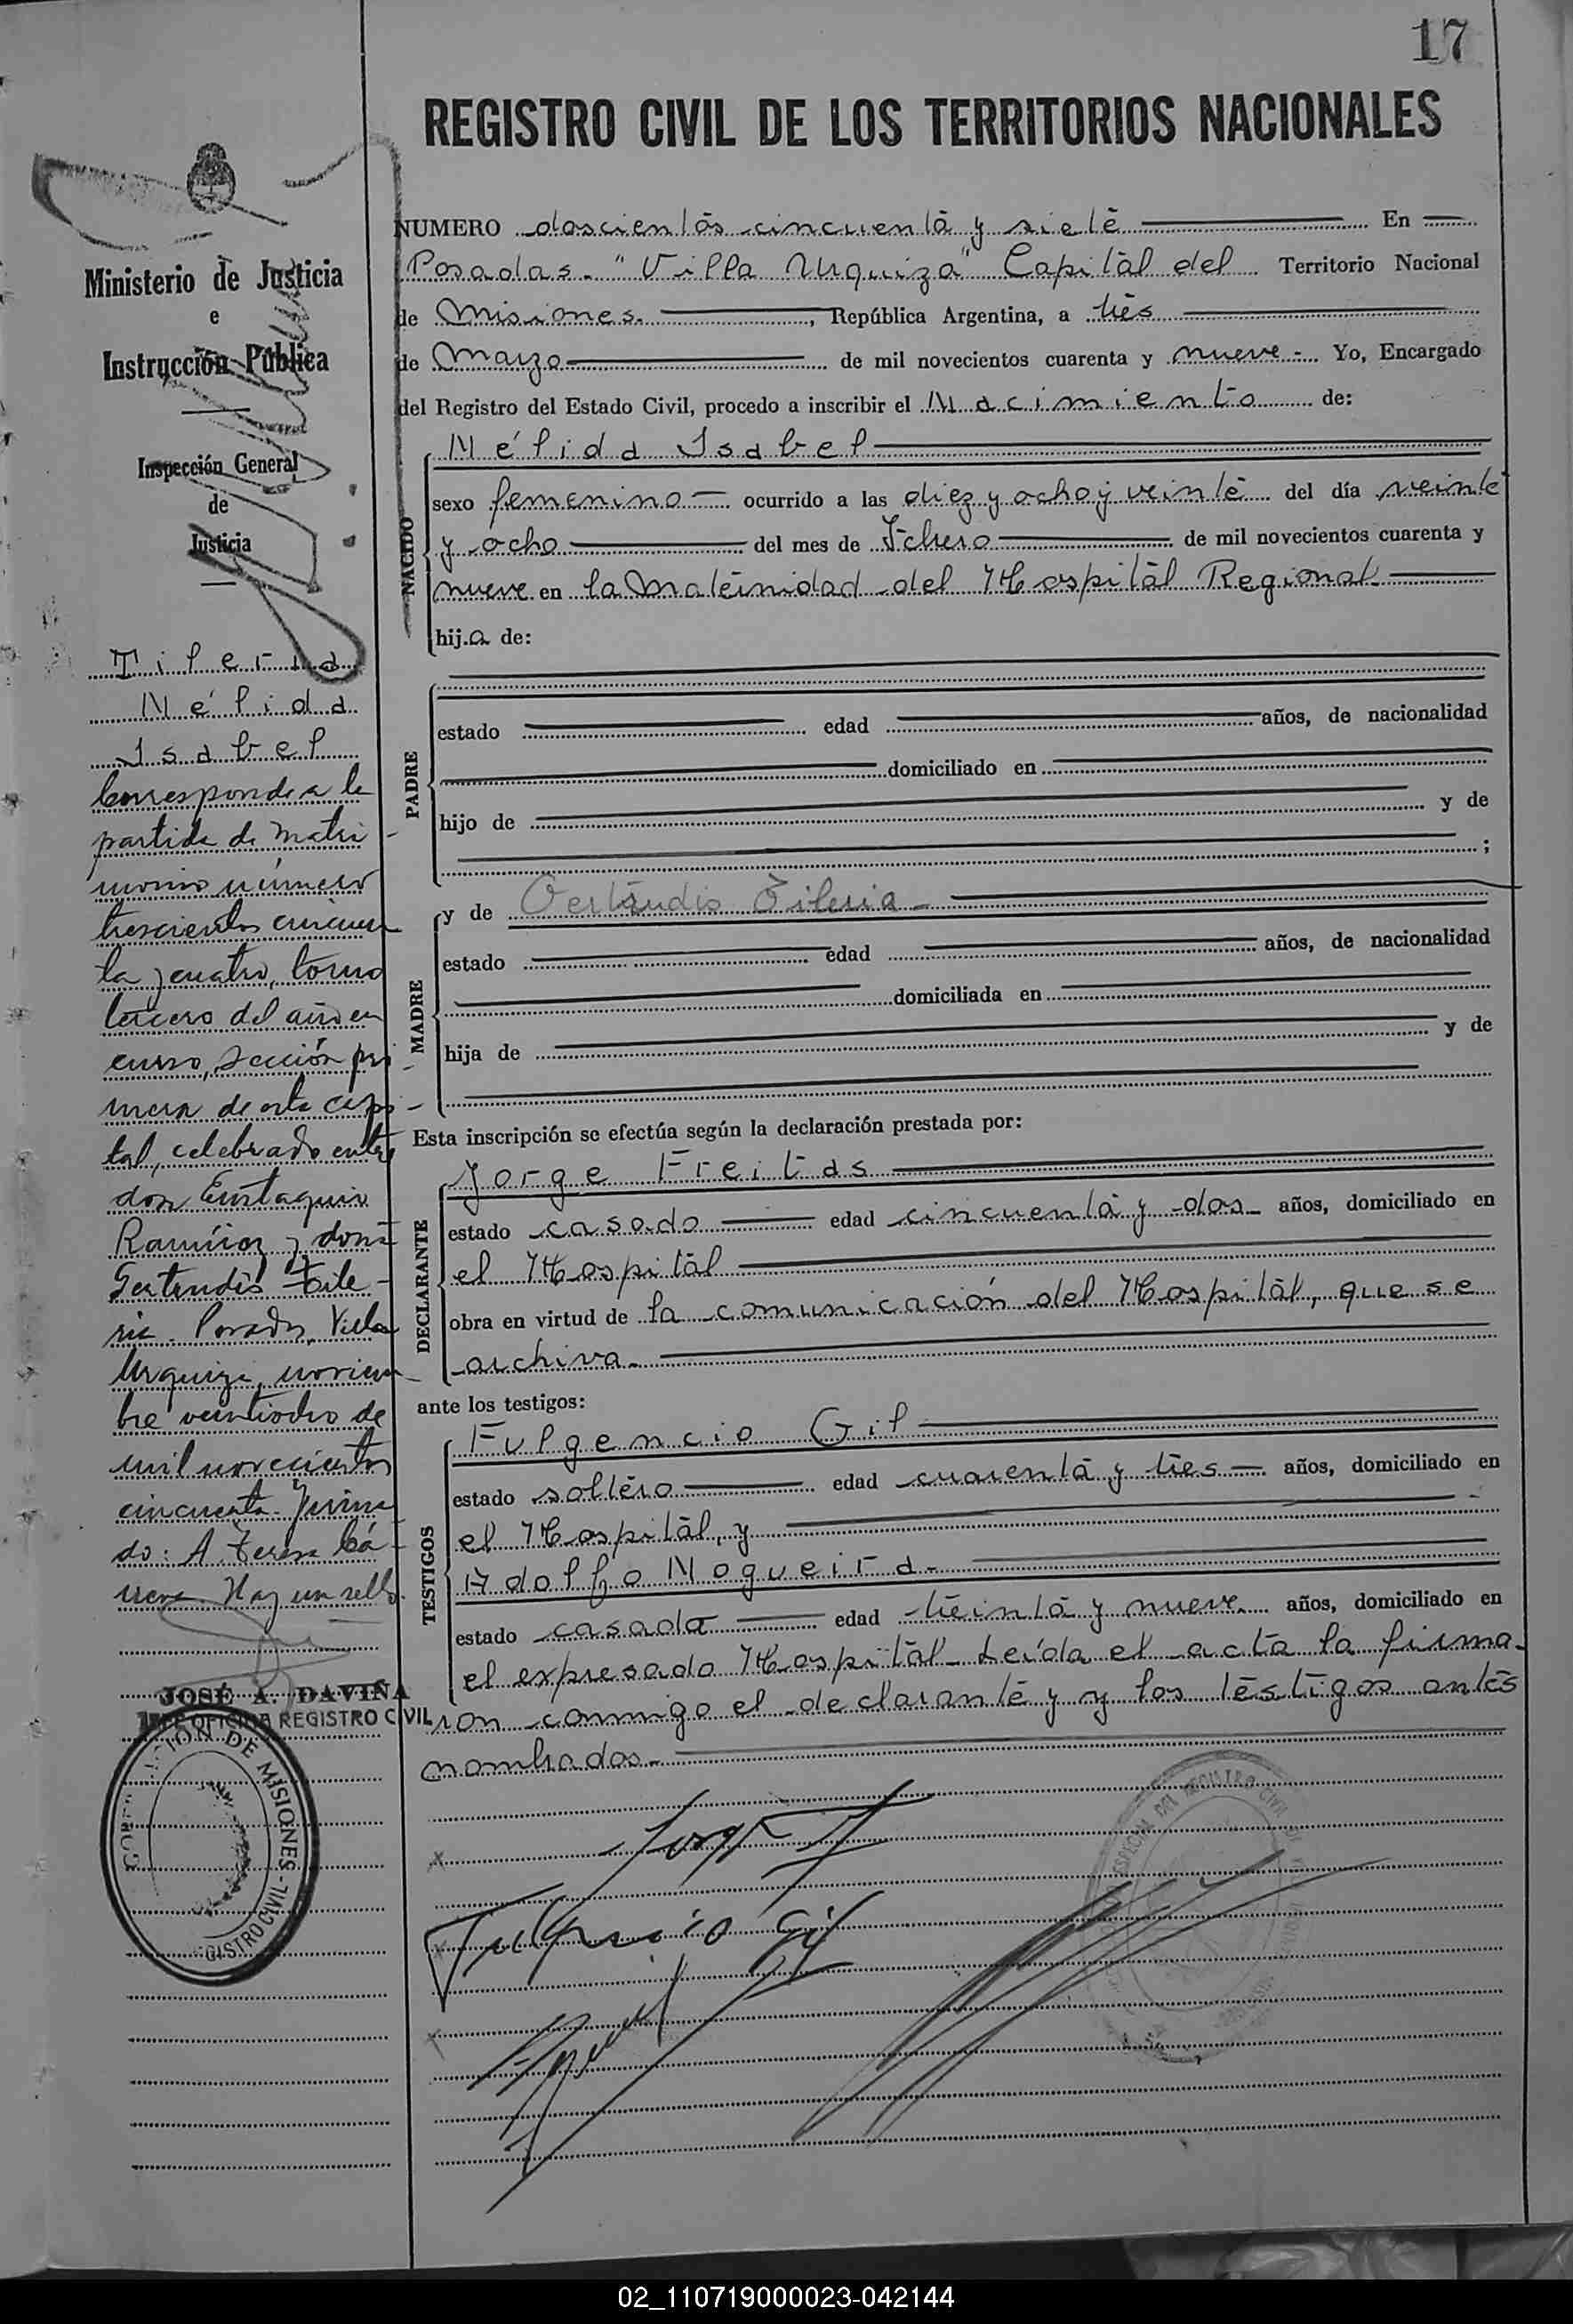 17
REGISTRO CIVIL DE LOS TERRITORIOS NACIONALES
Ministerio de Justicia
e
Instrucción Pública
Inspección General
de
Justicia
Tileria
Nélida
Isabel
Corresponde a la
partida de matri-
monio número
trescientos cincuen
ta y cuatro, tomo
tercero del año en
curso, sección pri-
mera de esta capi-
tal, celebrado entre
don Eustaquio
Ramírez y doña
Gertrudis Tile-
ria. Posadas, Villa
Urquiza, noviem-
bre veintiocho de
mil novecientos
cincuenta. Firma-
do: A. Teresa
Hay un sello.
JOSÉ A. DAVIÑA
JEFE OFICINA REGISTRO CIVIL
MISIONES - REGISTRO CIVIL
NUMERO doscientos cincuenta y siete En
Posadas. "Villa Urquiza" Capital del Territorio Nacional
de Misiones. , República Argentina, a tres
de Marzo de mil novecientos cuarenta y nueve. Yo, Encargado
del Registro del Estado Civil, procedo a inscribir el Nacimiento de:
NACIDO
Nélida Isabel
sexo femenino ocurrido a las diez y ocho y veinte del día veinte
y ocho del mes de Febrero de mil novecientos cuarenta y
nueve en la Maternidad del Hospital Regional
hij.a de:
PADRE
estado edad años, de nacionalidad
domiciliado en
hijo de y de
;
MADRE
y de Gertrudis Tileria
estado edad años, de nacionalidad
domiciliada en
hija de y de
Esta inscripción se efectúa según la declaración prestada por:
DECLARANTE
Jorge Freitas
estado casado edad cincuenta y dos años, domiciliado en
el Hospital
obra en virtud de la comunicación del Hospital, que se
archiva.
ante los testigos:
TESTIGOS
Fulgencio Gil
estado soltero edad cuarenta y tres años, domiciliado en
el Hospital, y
Adolfo Nogueira
estado casado edad treinta y nueve años, domiciliado en
el expresado Hospital. Leída el acta la firma-
ron conmigo el declarante y y los testigos antes
nombrados.
Fulgencio Gil
02_110719000023-042144